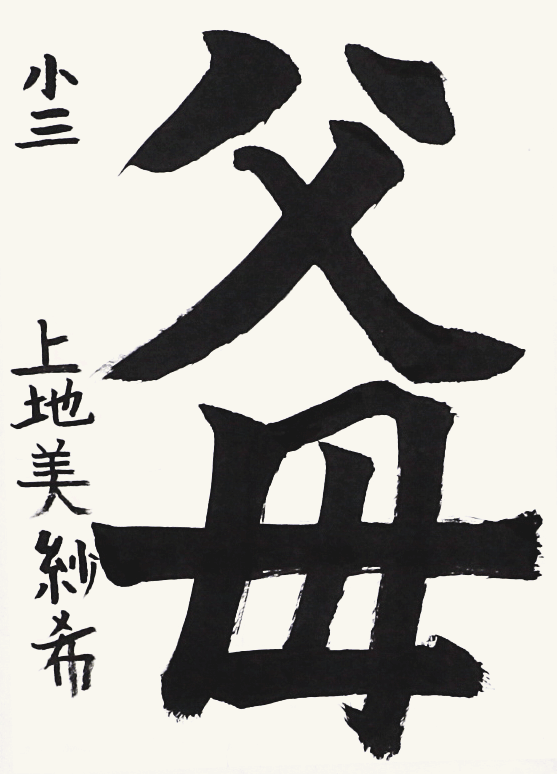 父母
小三 上地美紗希